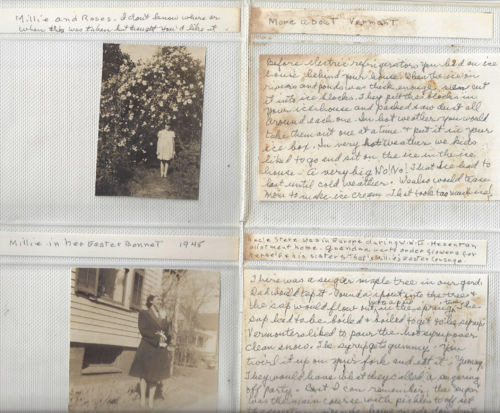 Millie and Roses. I don't know where or
when this was taken but thought you'd like it.
More about Vermont
Before electric refrigerators you had an ice
house behind your house. When the ice on
rivers and ponds was thick enough, men cut
it into ice blocks. They put the blocks in
your icehouse and packed saw dust all
around each one. In hot weather you would
take them out one at a time & put it in your
ice box. In very hot weather we kids
liked to go and sit on the ice in the ice
house - a very big No! No! That ice had to
last until cold weather. We also would tease
Mom to make ice cream. That took too much ice!
Millie in her Easter Bonnet 1945
Uncle Steve was in Europe during W.W. II. He sent an
allotment home. Grandma
her sister's
Millie's Easter corsage
There was a sugar maple tree in our yard.
Dad would tap it - Pound a spout into the tree &
the sap would flow out, in the spring. The
into a pail
sap had to be boiled & boiled to get to be syrup.
Vermonters liked to pour the hot syrup over
clean snow. The syrup gets gummy. You
twirl it up on your fork and eat it. Yummy.
They would have what they called a sugaring
off party. Best I can remember, the syrup
was the main course with pickles to off set